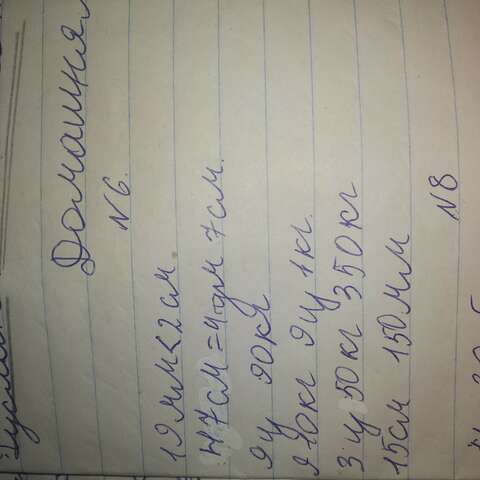 Домашня
N6.
19 мм < 2 см
47 см = 4 дм 7 см.
9 ц 90 кг
910 кг 9 ц 1 кг.
3 ц 50 кг 350 кг
15 см 150 мм
N8